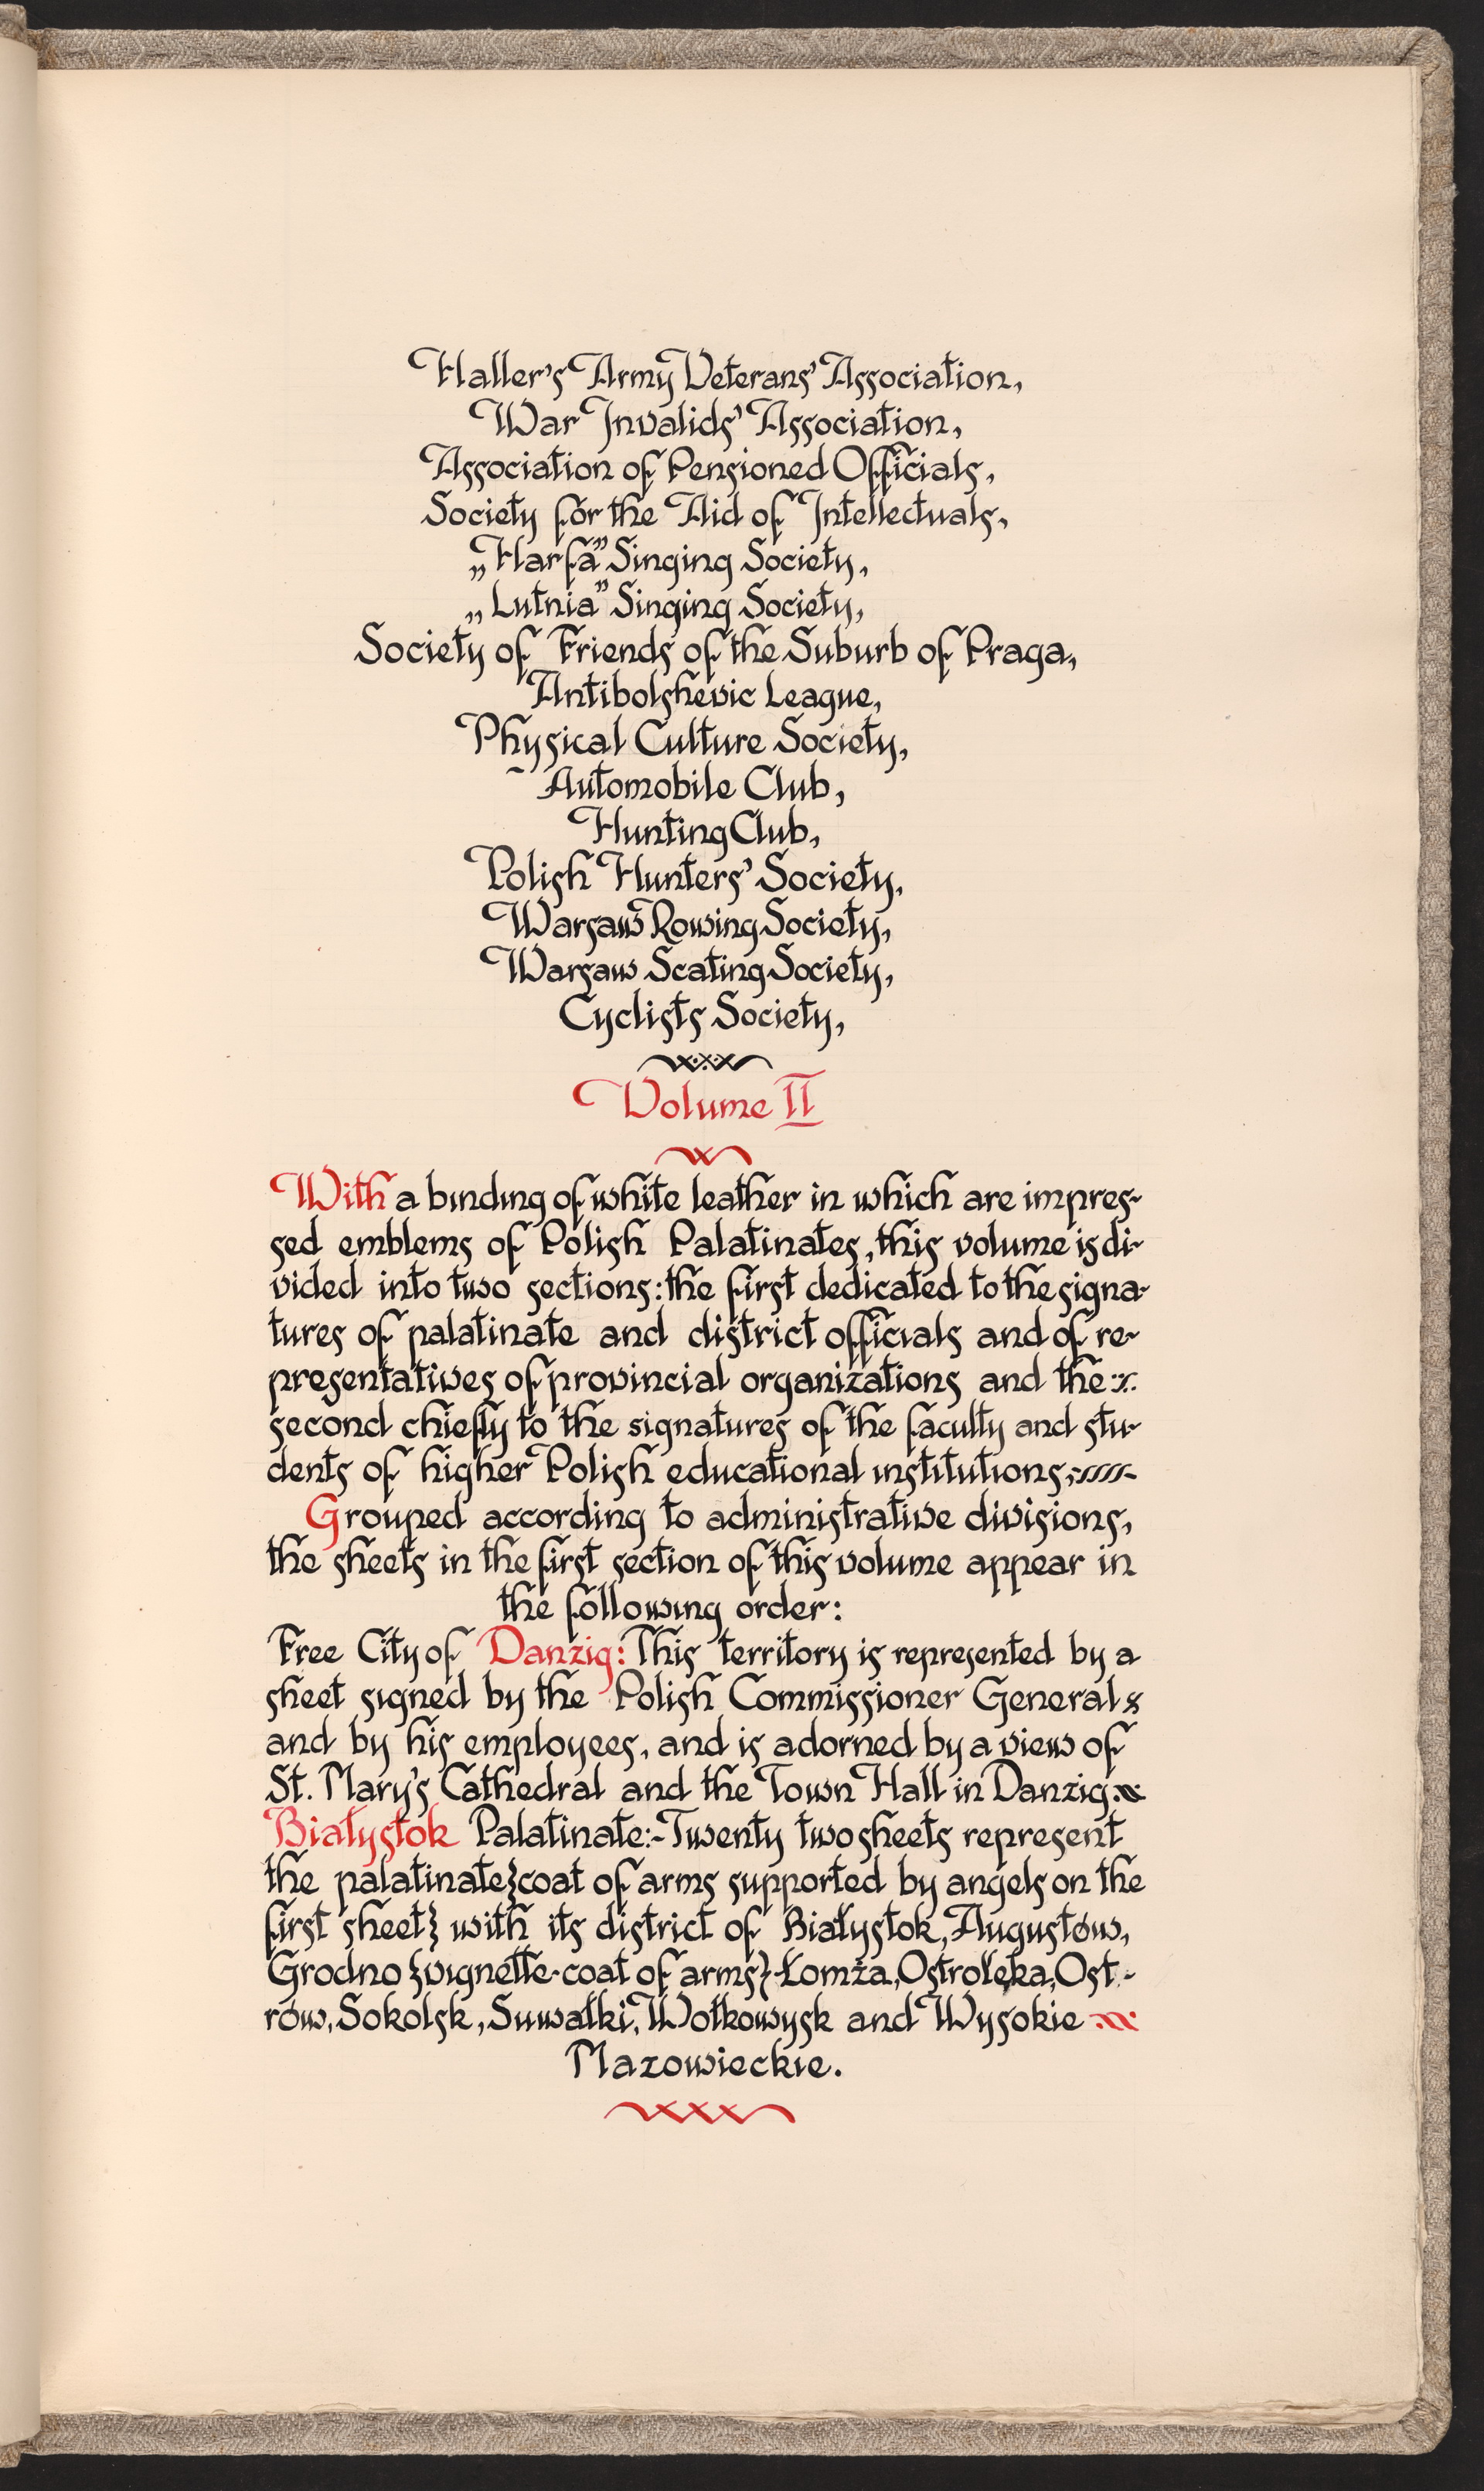 Haller's Army Veterans' Association,
War Invalids' Association,
Association of Pensioned Officials,
Society for the Aid of Intellectuals,
„Harfa” Singing Society,
„Lutnia” Singing Society,
Society of Friends of the Suburb of Praga,
Antibolshevic League,
Physical Culture Society,
Automobile Club,
Hunting Club,
Polish Hunters' Society,
Warsaw Rowing Society,
Warsaw Scating Society,
Cyclists Society,
Volume II
With a binding of white leather in which are impres-
sed emblems of Polish Palatinates, this volume is di-
vided into two sections: the first dedicated to the signa-
tures of palatinate and district officials and of re-
presentatives of provincial organizations and the
second chiefly to the signatures of the faculty and stu-
dents of higher Polish educational institutions;
Grouped according to administrative divisions,
the sheets in the first section of this volume appear in
the following order:
Free City of Danzig: This territory is represented by a
sheet signed by the Polish Commissioner General
and by his employees, and is adorned by a view of
St. Mary's Cathedral and the Town Hall in Danzig.
Białystok Palatinate:-Twenty two sheets represent
the palatinate {coat of arms supported by angels on the
first sheet} with its district of Białystok, Augustów,
Grodno {vignette-coat of arms} Łomża, Ostrołęka, Ost-
rów, Sokolsk, Suwałki, Wołkowysk and Wysokie
Mazowieckie.